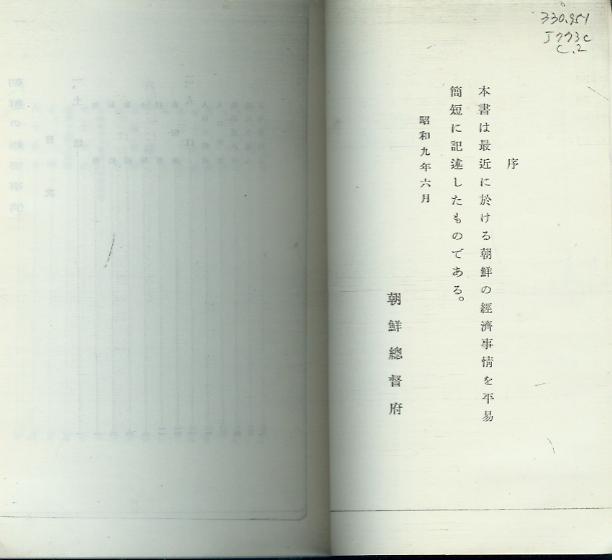 330.951
J773c
C.2
序
本書は最近に於ける朝鮮の經濟事情を平易
簡短に記述したものである。
昭和九年六月
朝鮮總督府